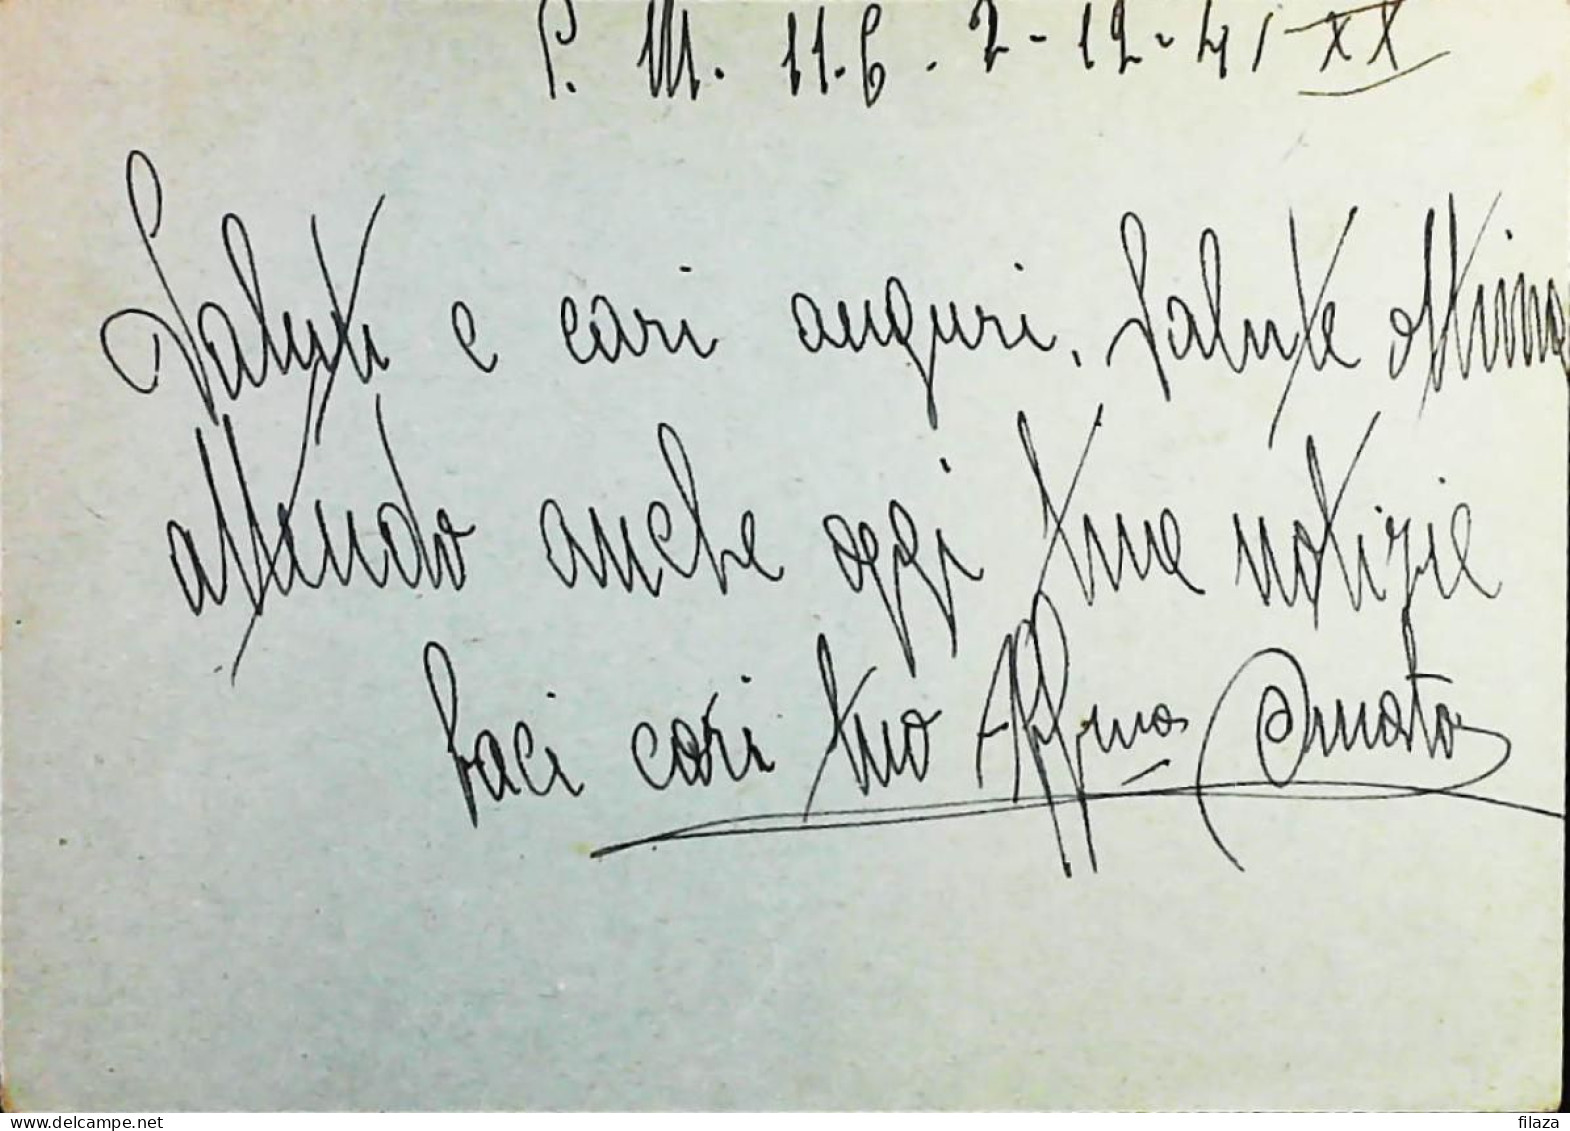 P. M. 116. 2-12-41-XX
Saluti e cari auguri. Salute ottima
attendo anche oggi tue notizie
baci cari tuo Aff.mo Amato
delcampe.net
filaza